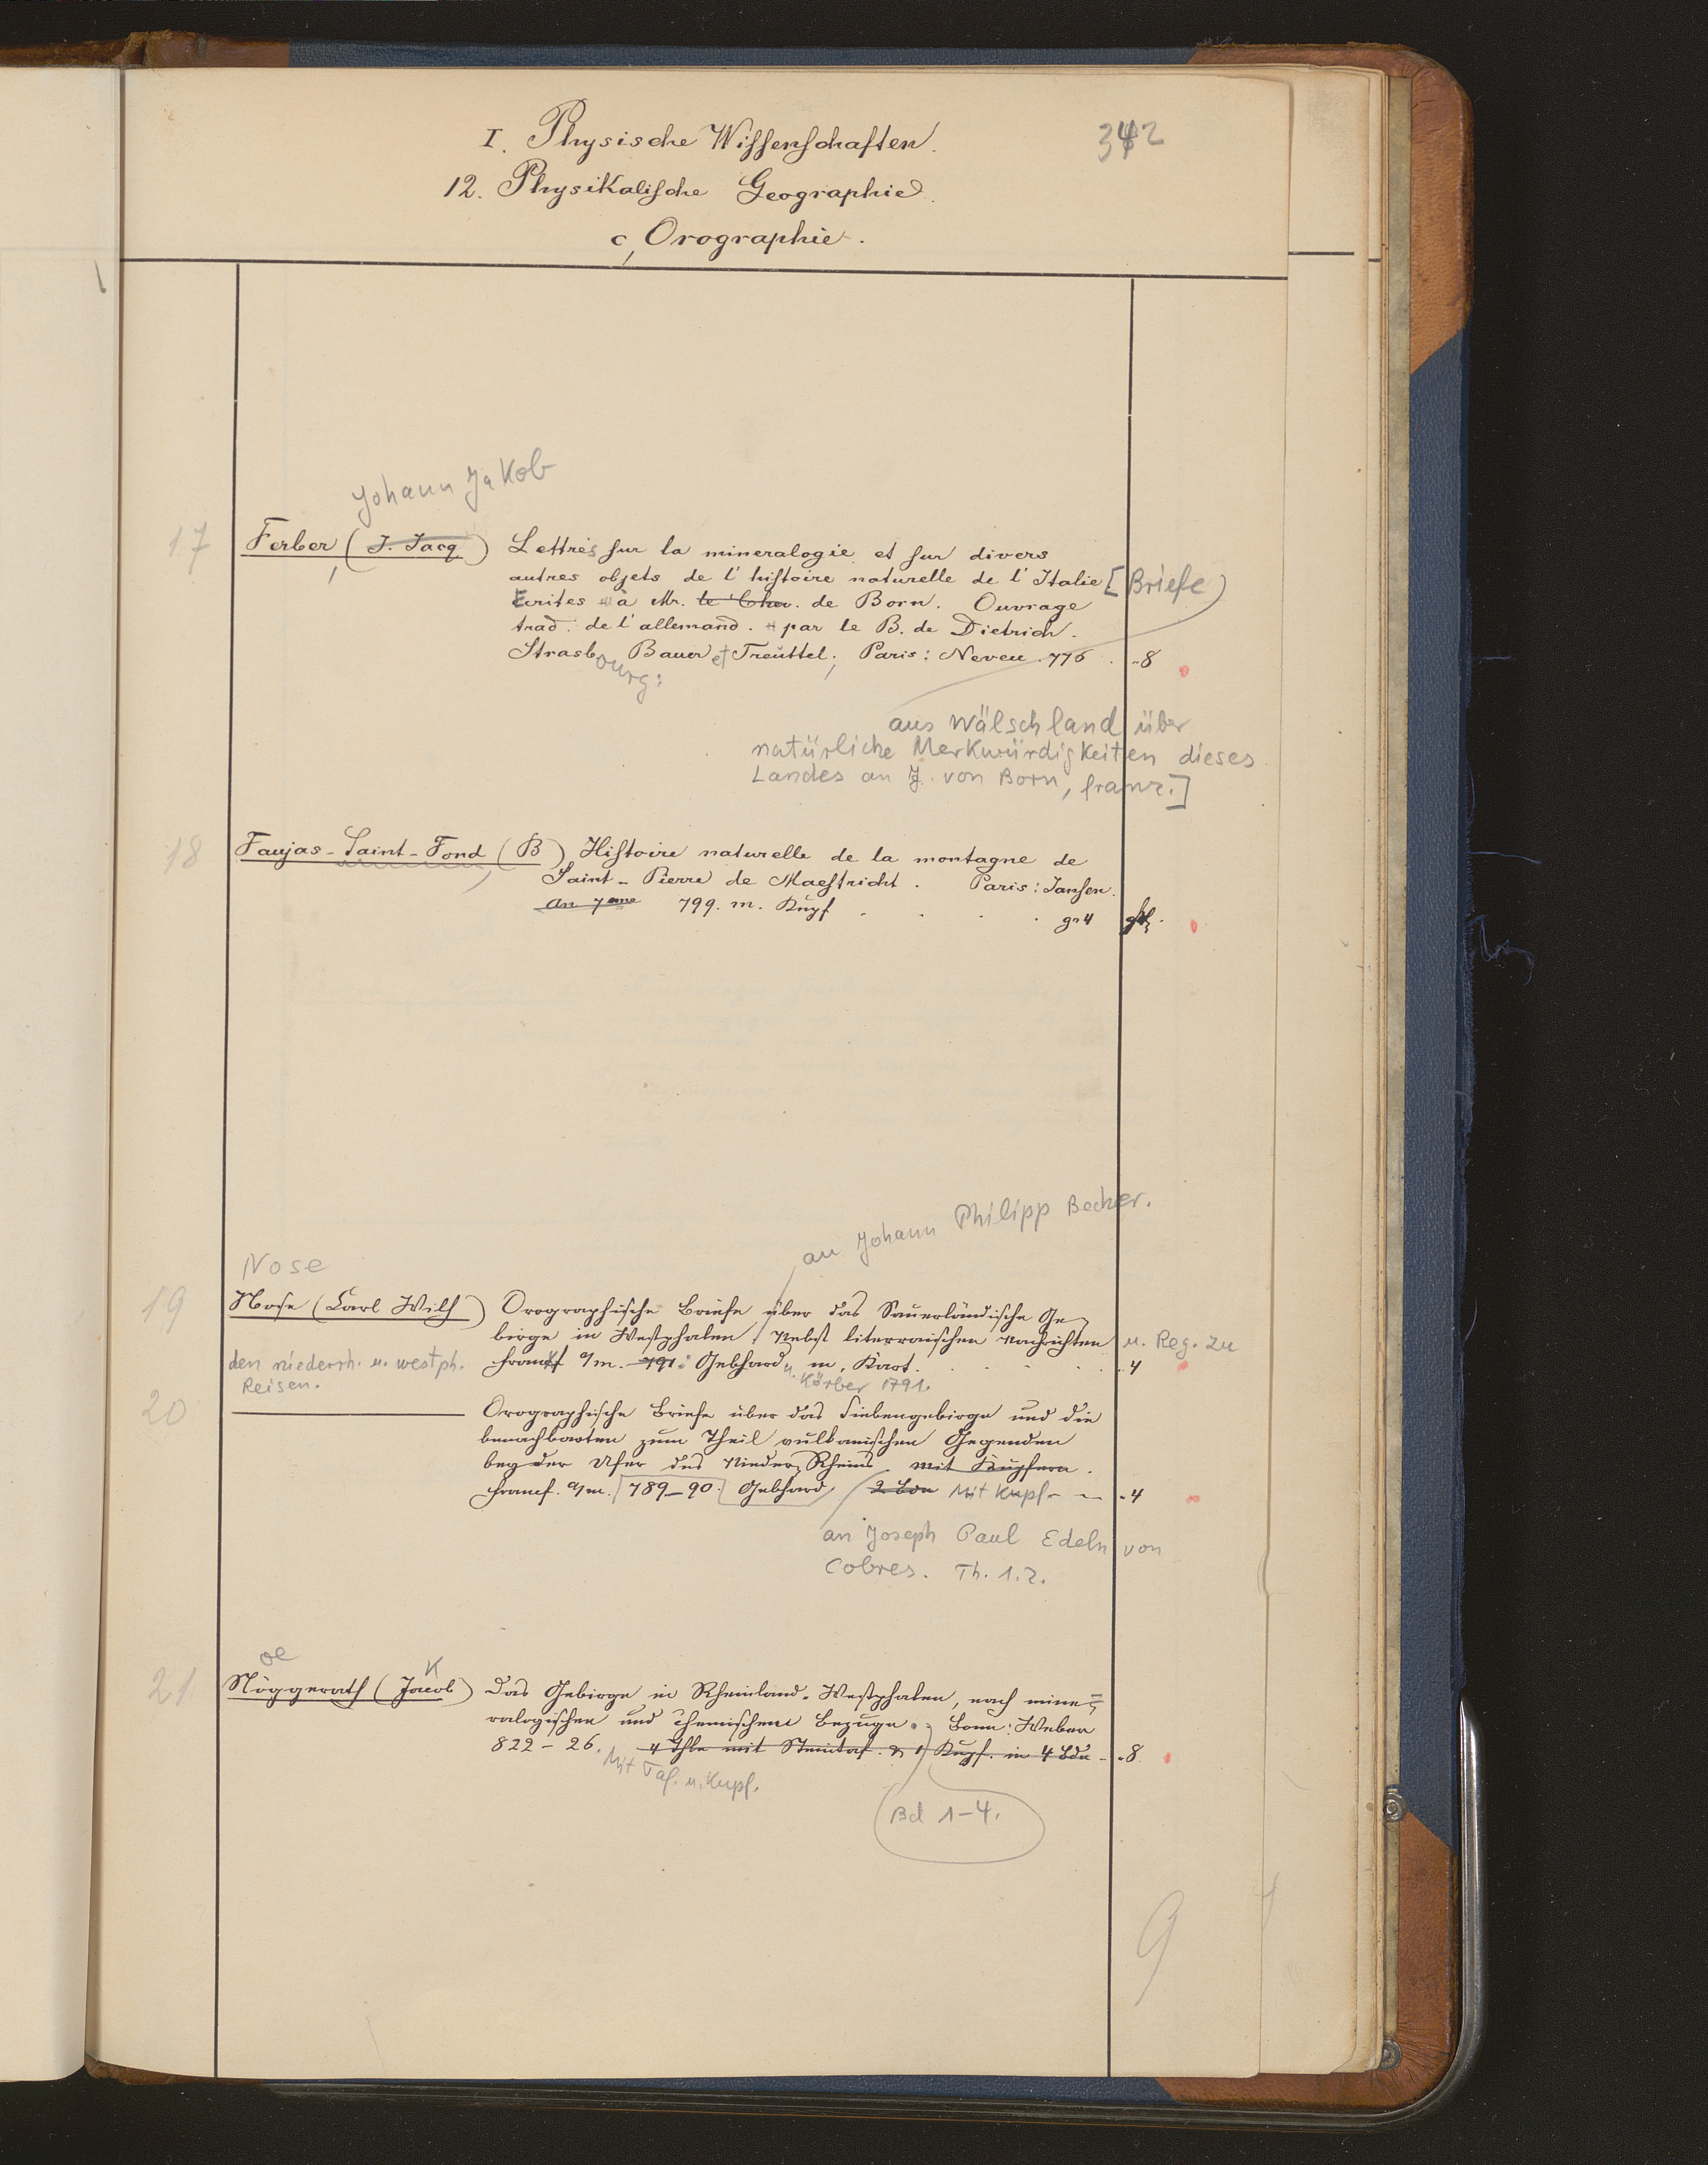 I. Physische Wissenschaften.
342
12. Physikalische Geographie.
c, Orographie.
Johann Jakob
17 Ferber, (J. Jacq) Lettres sur la mineralogie et sur divers
autres objets de l'histoire naturelle de l'Italie [Briefe
Ecrites à Mr. le Chev. de Born. Ouvrage
trad. de l'allemand. par le B. de Dietrich.
Strasbourg: Bauer et Treüttel; Paris: Neveu 776. "8
aus Wälschland über
natürliche Merkwürdigkeiten dieses
Landes an J. von Born, franz.]
18 Faujas-Saint-Fond, (B) Histoire naturelle de la montagne de
Saint-Pierre de Maestricht. Paris: Jansen.
An 7eme 799. m. Kupf. . . . gr 4
an Johann Philipp Becher.
Nose
19 Nose (Carl Wilh) Orographische Briefe über das Sauerländische Ge-
birge in Westphalen. Nebst literraischen Nachrichten u. Reg. zu
den niederrh. u. westph. Reisen.
Frankf a/m. 791. Gebhard u. Körber 1791. m. Kart. . . . "4
20 ——— Orographische Briefe über das Siebengebirge und die
benachbarten zum Theil vulkanischen Gegenden
beyder Ufer des Nieder-Rheins mit Kupfern.
Francf. a/m. 789-90. Gebhard. 2 Bde Mit Kupf. "4
an Joseph Paul Edeln von
Cobres. Th. 1.2.
oe K
21 Nöggerath (Jacob) Das Gebirge in Rheinland-Westphalen, nach mine-
ralogischen und chemischem Bezuge. Bonn: Weber
822-26. 4 Thle mit Steintaf. & Kupf. in 4 Bdn "8
Mit Taf. u. Kupf.
Bd 1-4.
9